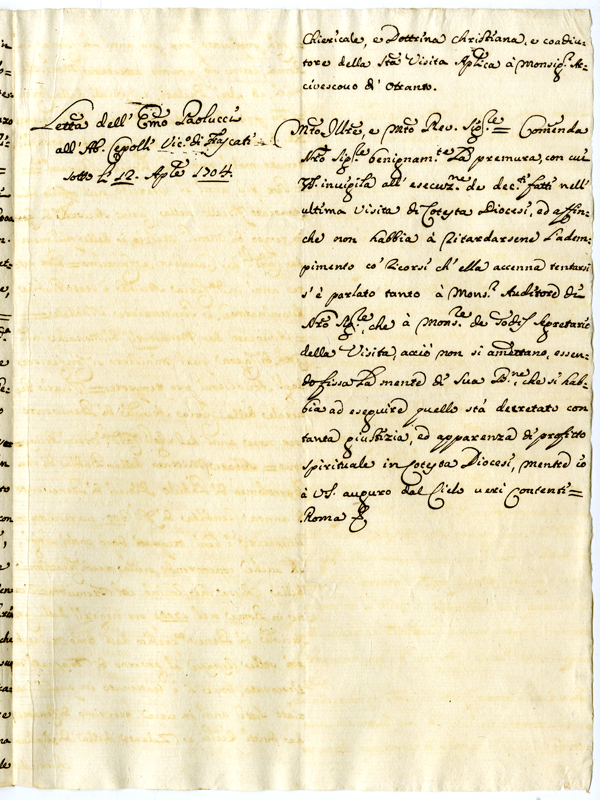 Chiericale, e Dottrina Christiana, e coadiu-
tore della Sta Visita Aplica à Monsigr. Ar-
civescovo d'Otranto.
Lettra dell'Emo Paolucci
all'Ab. Cepolli Vico. di Frascati
sotto li 12. Aple 1704.
Mto Illre, e Mto Rev. Sigre = Comenda
Nro Sigre benignamte La premura, con cui
VS. invigila all'esecuzne de decti fatti nell'
ultima Visita di Cotesta Diocesi, ed affin-
che non habbia à ritardarsene L'adem-
pimento co' ricorsi ch'ella accenna tentarsi
s'è parlato tanto à Monsr. Auditore di
Nro Sigre, che à Monsre de Todis Segretario
della Visita, acciò non si amettano, essen-
do fissa La mente di Sua Bne, che si hab-
bia ad eseguire quello stà decretato con
tanta giustizia, ed apparenza di profitto
spirituale in Cotesta Diocesi, mentre io
à VS. auguro dal Cielo veri Contenti =
Roma